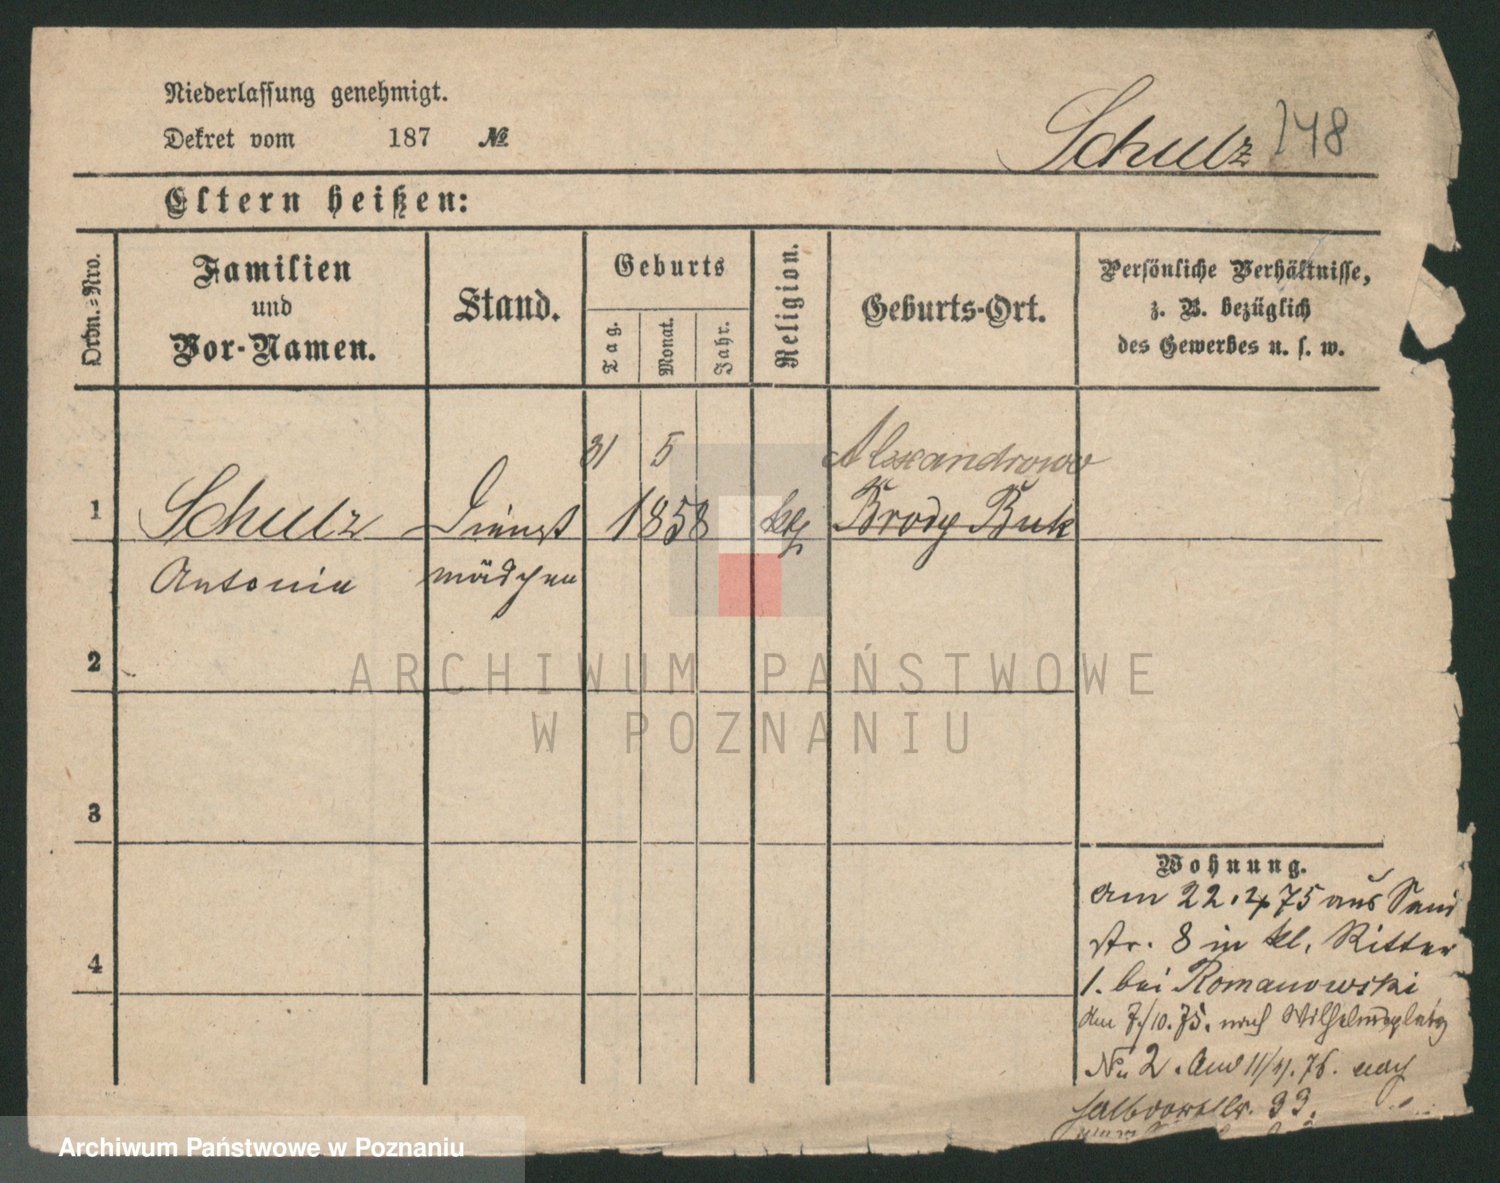 Niederlassung genehmigt.
Dekret vom 187 №
Schulz 248
Eltern heißen:
Ordn.-Nro.
Familien
und
Vor-Namen.
Stand.
Geburts
Tag.
Monat.
Jahr.
Religion.
Geburts-Ort.
Persönliche Verhältnisse,
z. B. bezüglich
des Gewerbes u. s. w.
31 5 Alexandrowo
1 Schulz Dienst 1858 kth Brody Buk
Antonia mädchen
2
ARCHIWUM PAŃSTWOWE
W POZNANIU
3
Wohnung.
am 22.4 75 aus Sand
str. 8 in kl. Ritter
4
1. bei Romanowski
Am 7/10. 75. nach Wilhelmsplatz
No 2. Am 11/4. 76. nach
Halbdorfstr. 33.
Archiwum Państwowe w Poznaniu